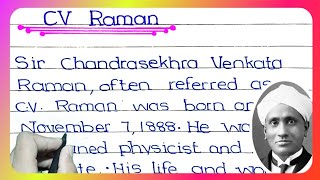 CV Raman
Sir Chandrasekhra Venkata
Raman, often referred as
C.V. Raman was born on
November 7, 1888. He wa
ned physicist and
te. His life and wo